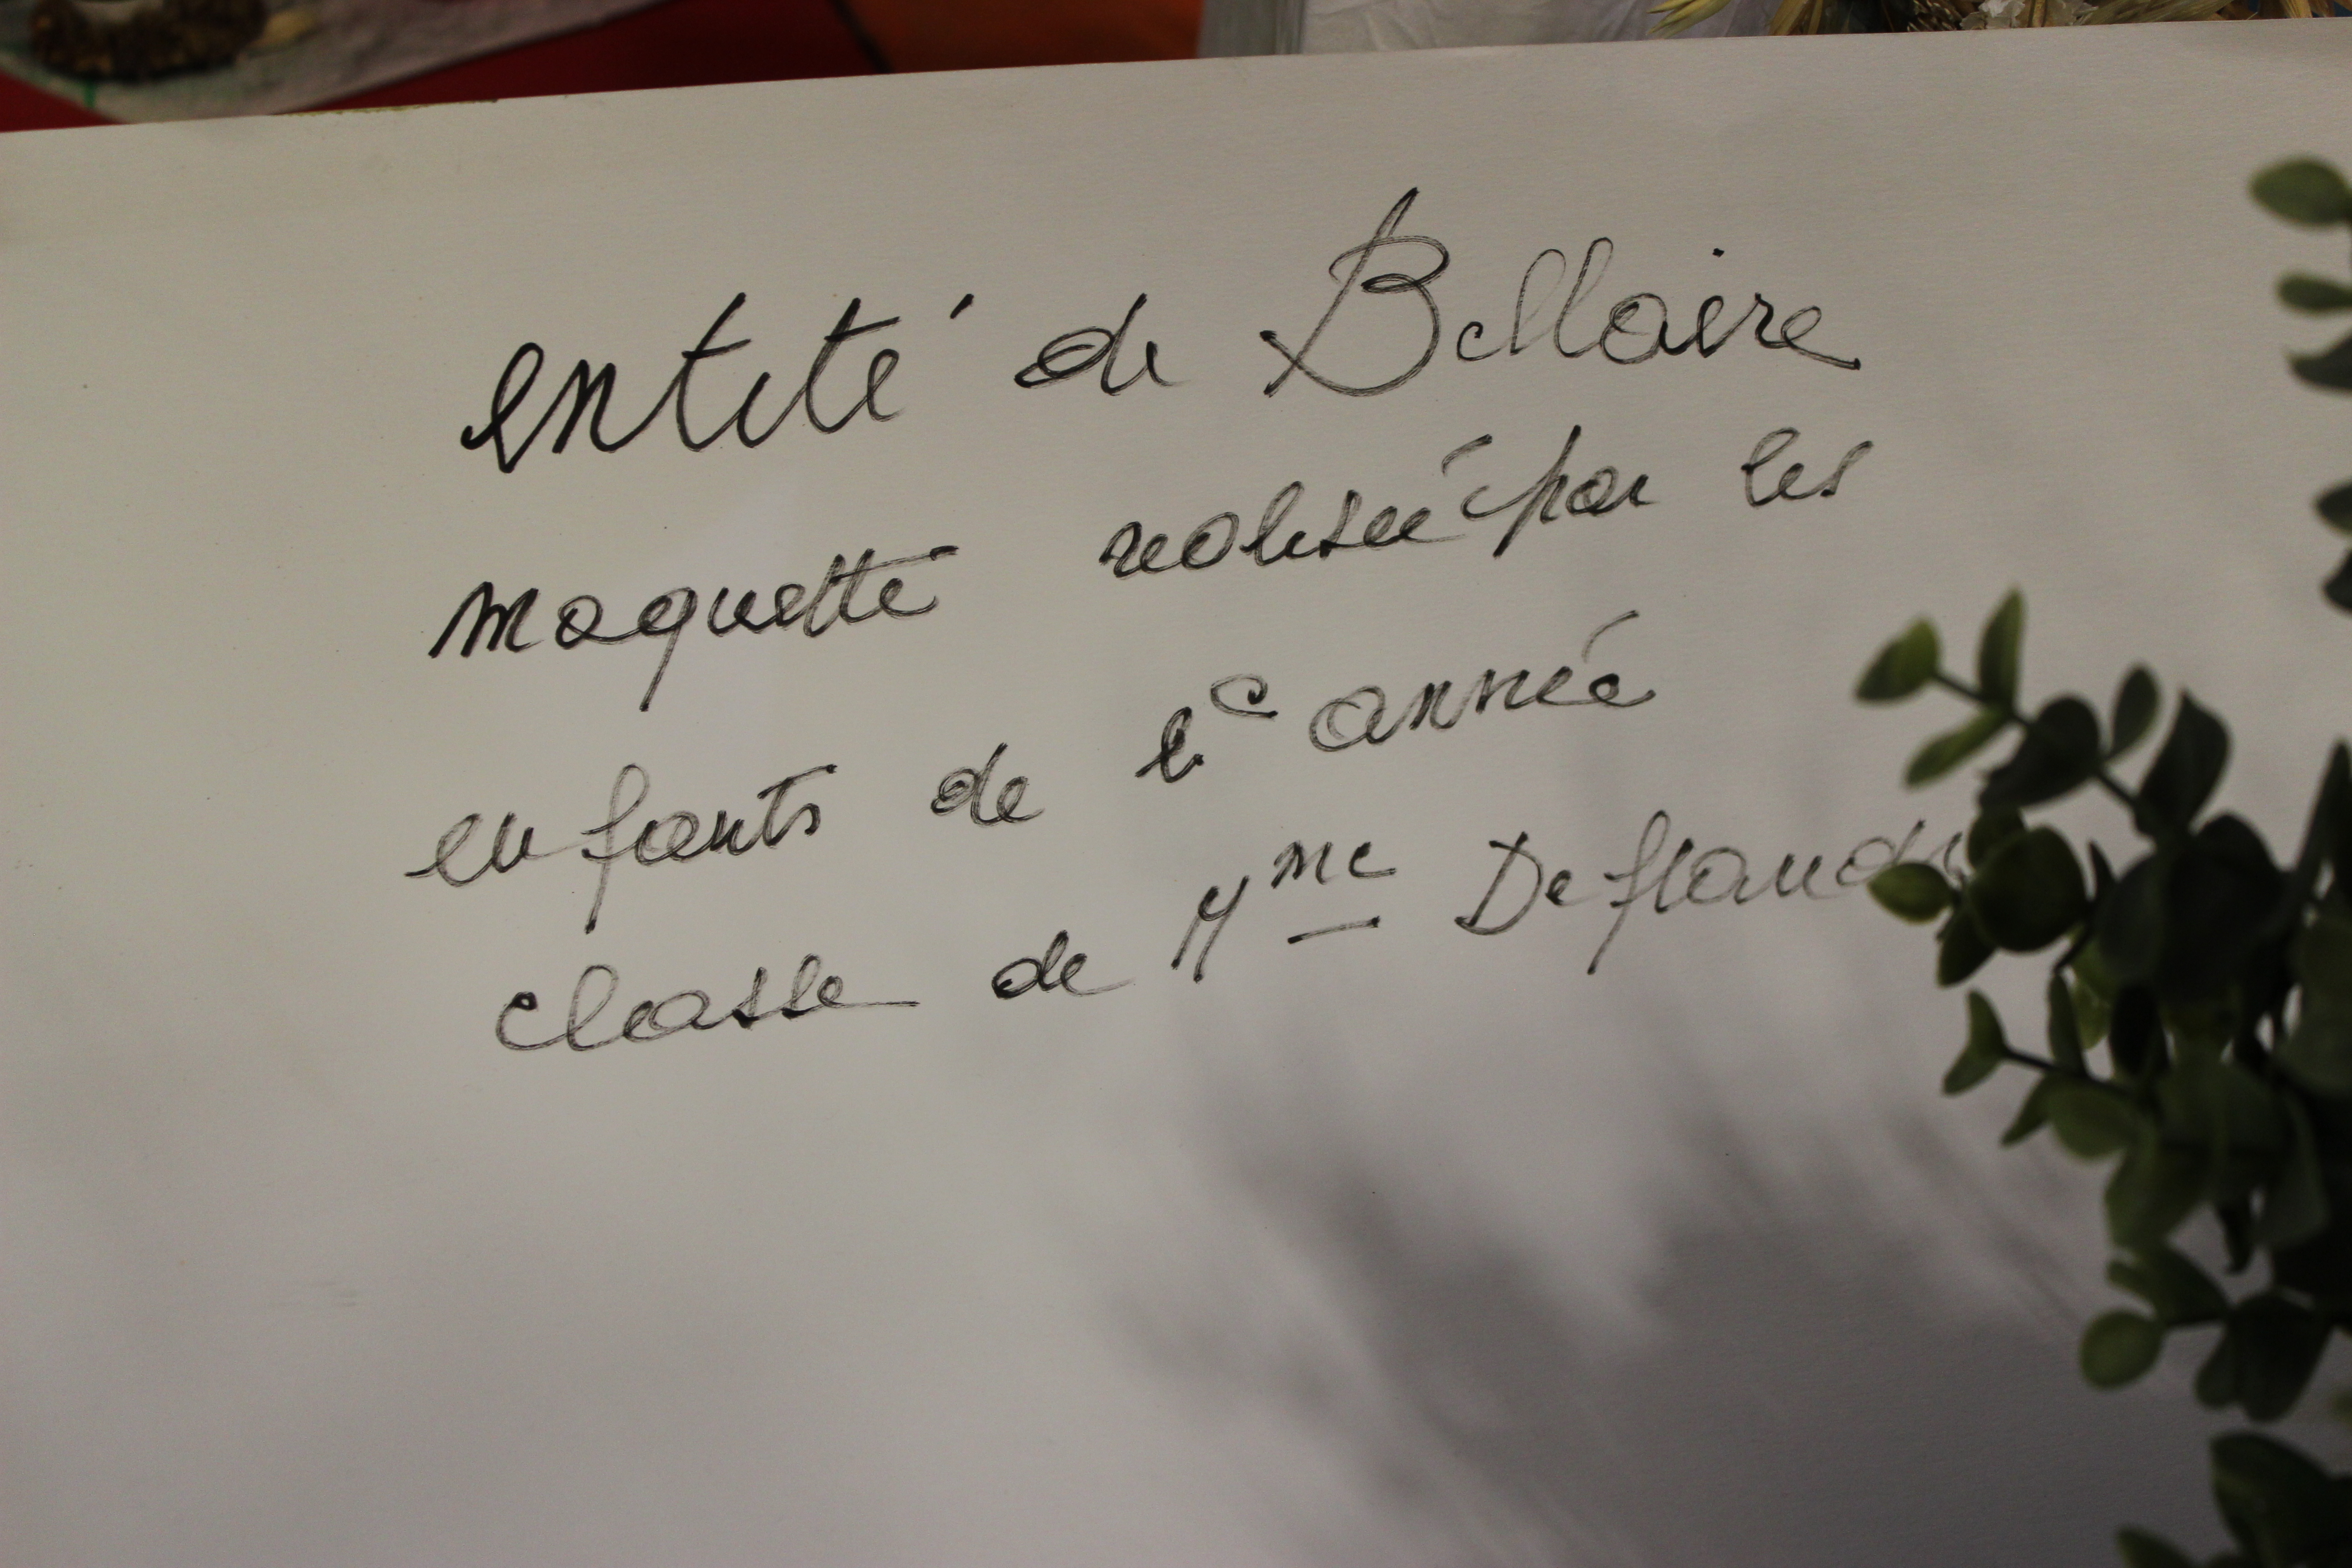 entité de Bellaire
maquette realisée par les
enfants de 6e année
classe de Mme